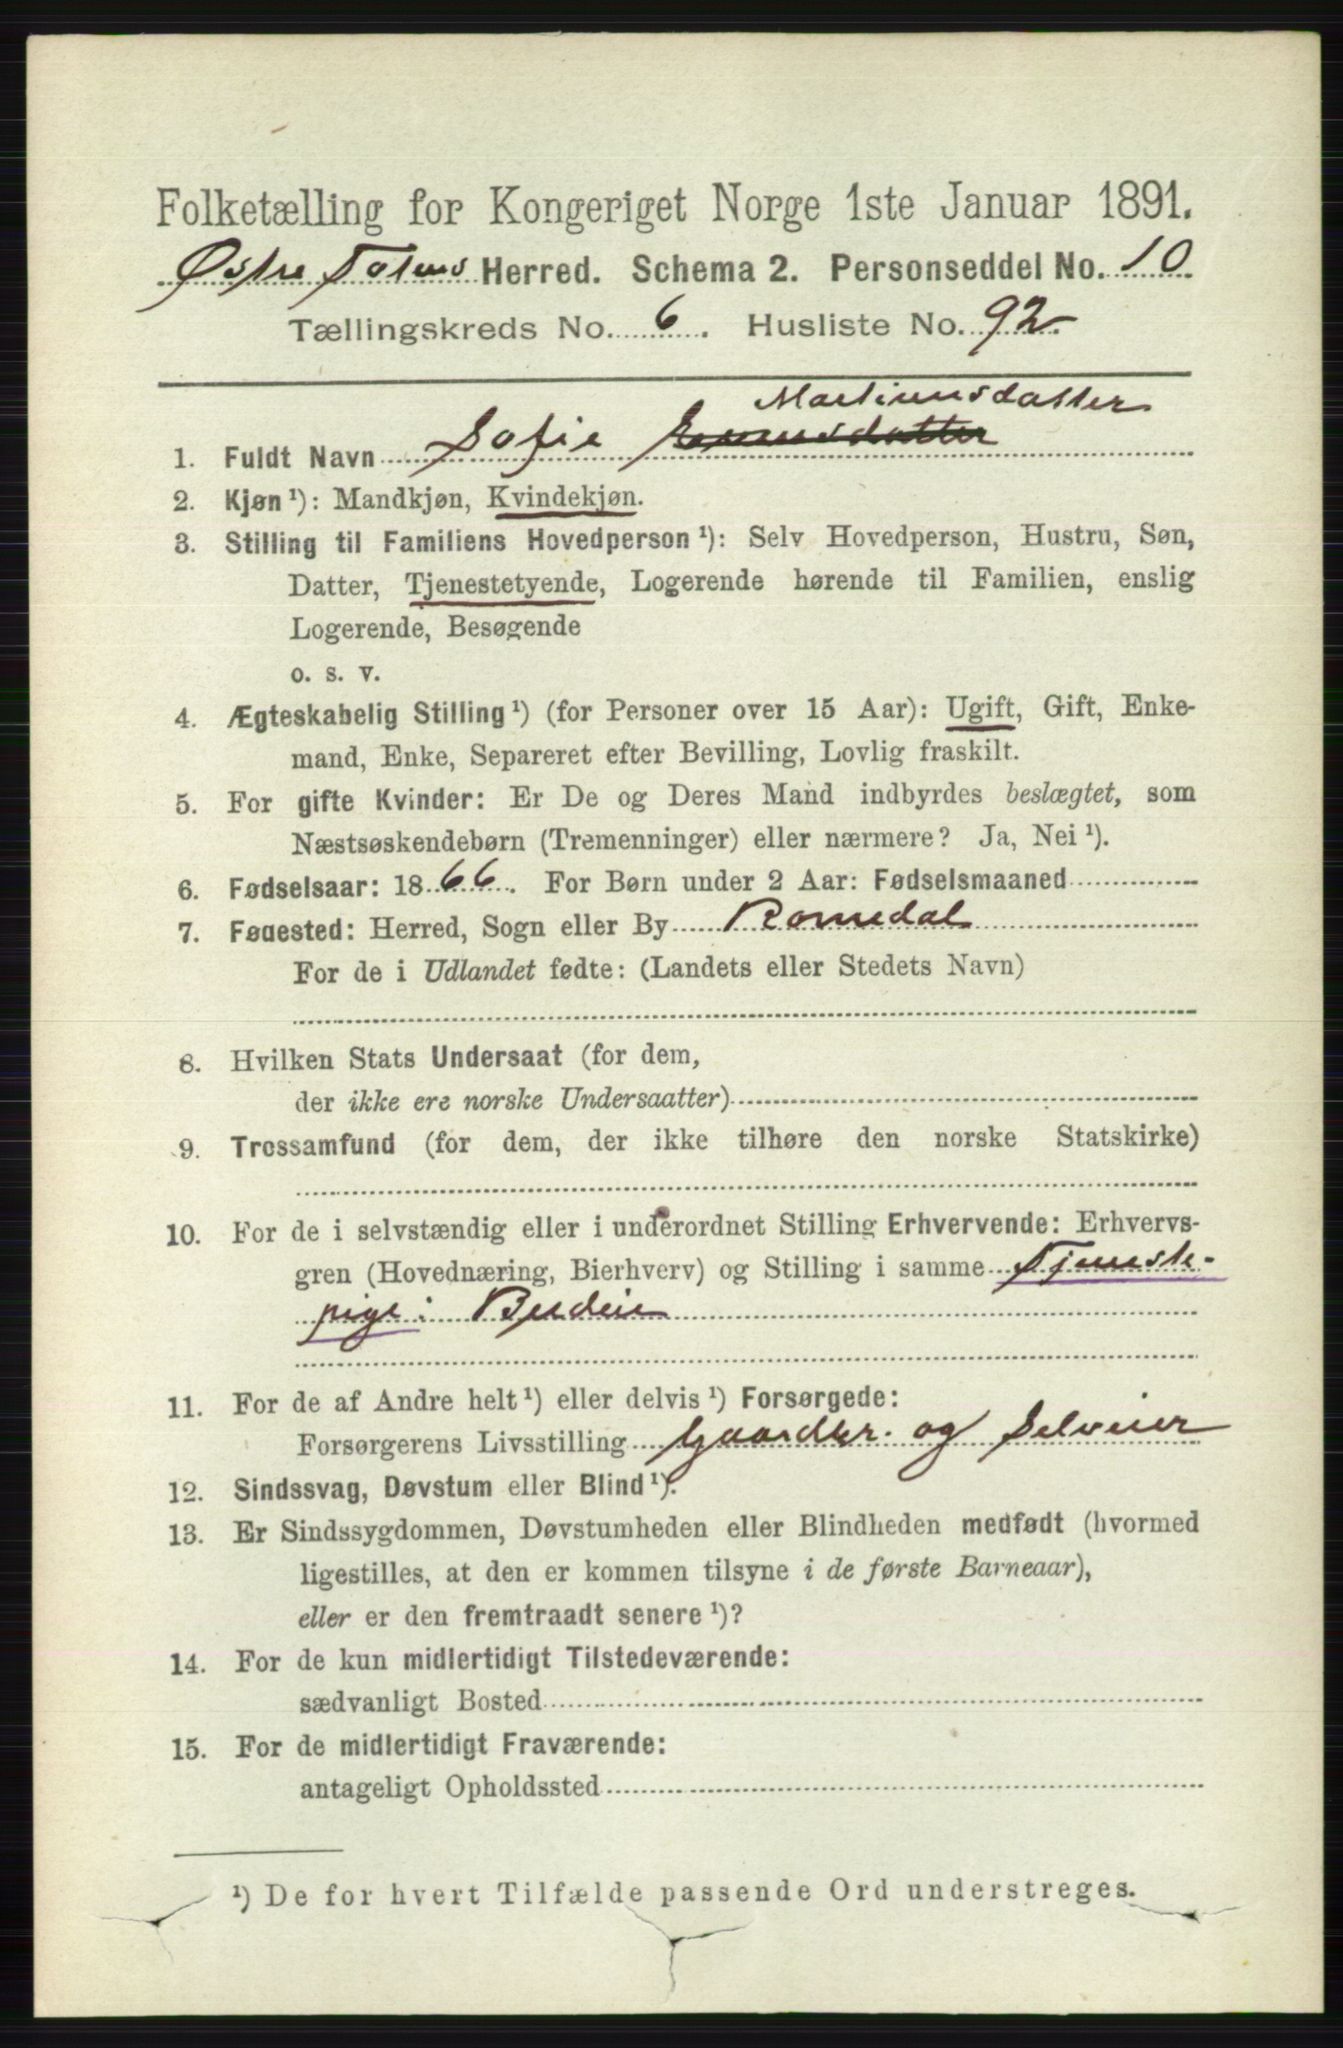 Folketælling for Kongeriget Norge 1ste Januar 1891.
Østre Totens Herred. Schema 2. Personseddel No. 10
Tællingskreds No. 6. Husliste No. 92
Martinusdatter
1. Fuldt Navn Sofie
2. Kjøn ¹): Mandkjøn, Kvindekjøn.
3. Stilling til Familiens Hovedperson ¹): Selv Hovedperson, Hustru, Søn,
Datter, Tjenestetyende, Logerende hørende til Familien, enslig
Logerende, Besøgende
o. s. v.
4. Ægteskabelig Stilling ¹) (for Personer over 15 Aar): Ugift, Gift, Enke-
mand, Enke, Separeret efter Bevilling, Lovlig fraskilt.
5. For gifte Kvinder: Er De og Deres Mand indbyrdes beslægtet, som
Næstsøskendebørn (Tremenninger) eller nærmere? Ja, Nei ¹).
6. Fødselsaar: 1866. For Børn under 2 Aar: Fødselsmaaned
7. Føaested: Herred, Sogn eller By Romedal
For de i Udlandet fødte: (Landets eller Stedets Navn)
8. Hvilken Stats Undersaat (for dem,
der ikke ere norske Undersaatter)
9. Trossamfund (for dem, der ikke tilhøre den norske Statskirke)
10. For de i selvstændig eller i underordnet Stilling Erhvervende: Erhvervs-
gren (Hovednæring, Bierhverv) og Stilling i samme Tjeneste-
pige: Budeie
11. For de af Andre helt ¹) eller delvis ¹) Forsørgede:
Forsørgerens Livsstilling Gaardbr. og Selveier
12. Sindssvag, Døvstum eller Blind ¹).
13. Er Sindssygdommen, Døvstumheden eller Blindheden medfødt (hvormed
ligestilles, at den er kommen tilsyne i de første Barneaar),
eller er den fremtraadt senere ¹)?
14. For de kun midlertidigt Tilstedeværende:
sædvanligt Bosted
15. For de midlertidigt Fraværende:
antageligt Opholdssted
¹) De for hvert Tilfælde passende Ord understreges.